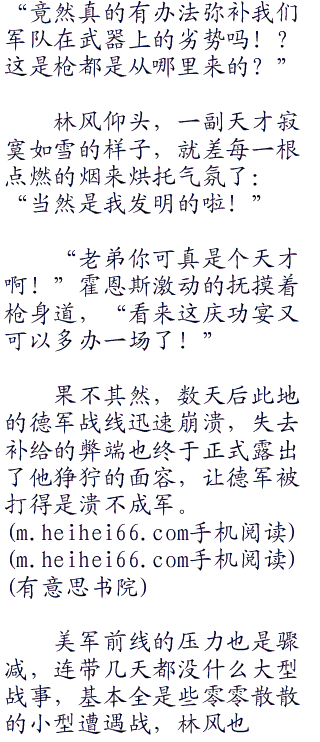 “竟然真的有办法弥补我们
军队在武器上的劣势吗！？
这是枪都是从哪里来的？”
林风仰头，一副天才寂
寞如雪的样子，就差每一根
点燃的烟来烘托气氛了：
“当然是我发明的啦！”
“老弟你可真是个天才
啊！”霍恩斯激动的抚摸着
枪身道，“看来这庆功宴又
可以多办一场了！”
果不其然，数天后此地
的德军战线迅速崩溃，失去
补给的弊端也终于正式露出
了他狰狞的面容，让德军被
打得是溃不成军。
(m.heihei66.com手机阅读)
(m.heihei66.com手机阅读)
(有意思书院)
美军前线的压力也是骤
减，连带几天都没什么大型
战事，基本全是些零零散散
的小型遭遇战，林风也